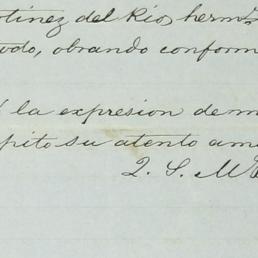 rtinez del Rio, herm
odo, obrando conform
la expresion de m
pito su atento am
Q. S. M.